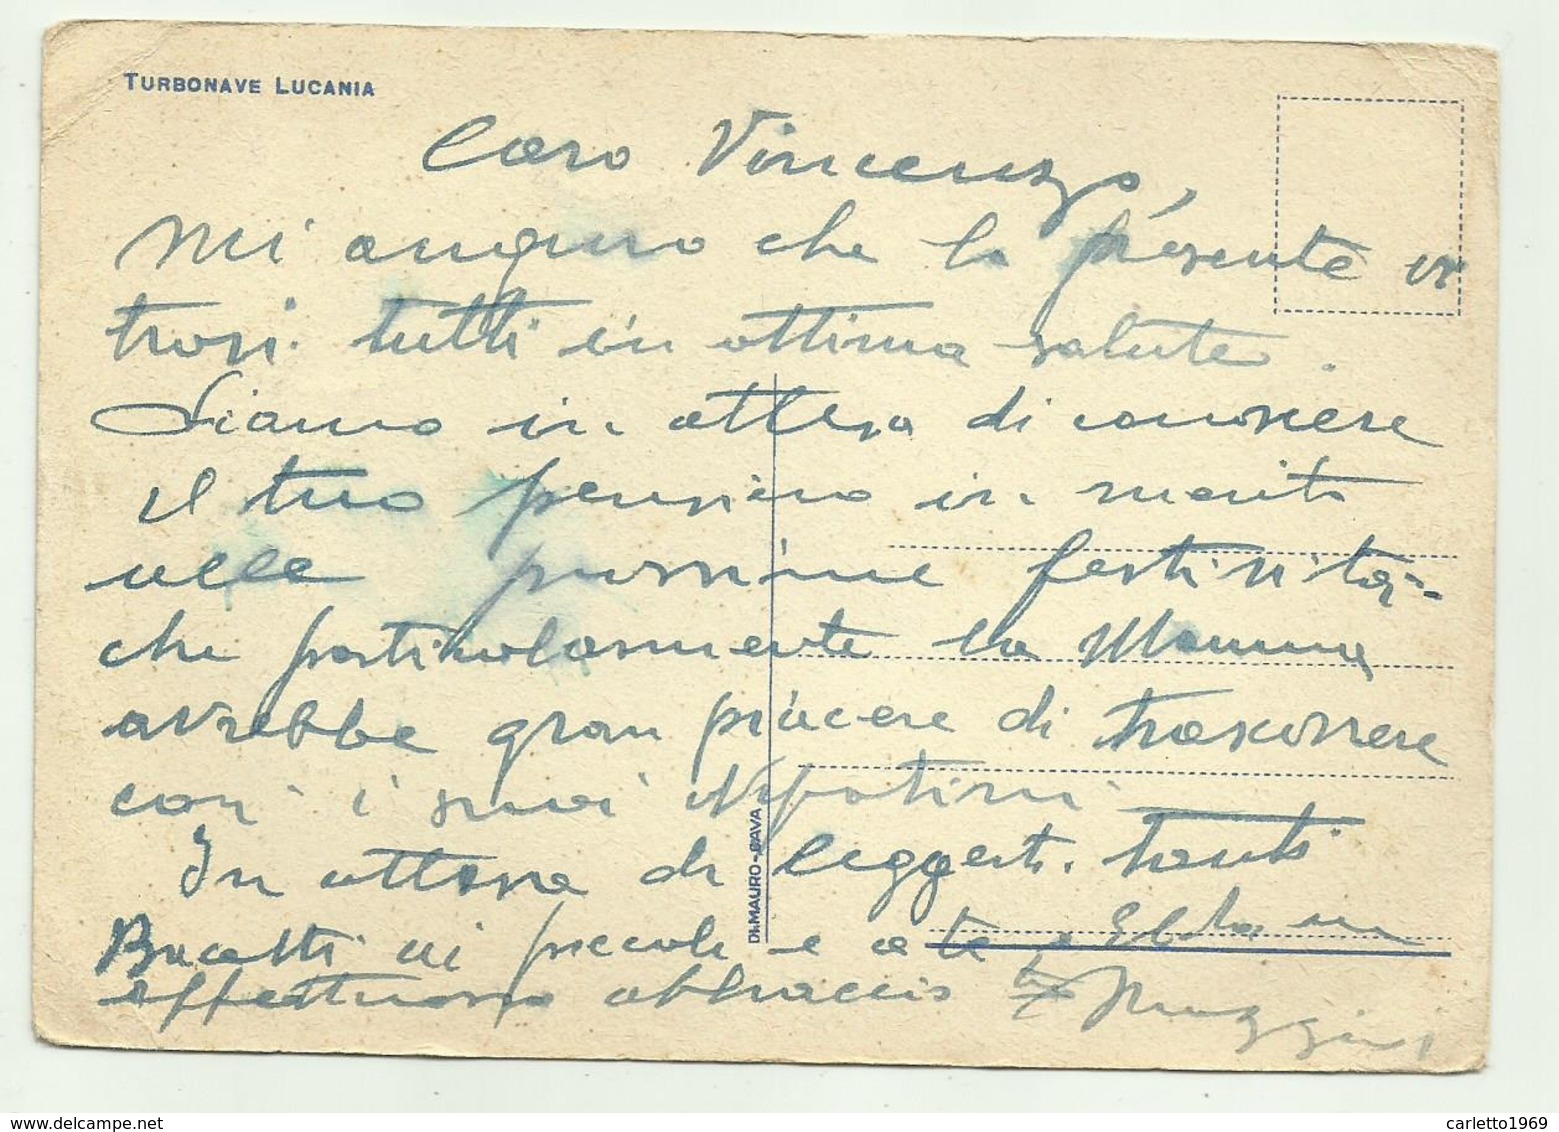 TURBONAVE LUCANIA
Caro Vincenzo,
mi auguro che la presente vi
trovi tutti in ottima salute.
Siamo in attesa di conoscere
il tuo pensiero in merito
alle prossime festività-
che particolarmente la Mamma
avrebbe gran piacere di trascorrere
con i suoi Nepotini
In attesa di leggerti. Tanti
Bacetti ai piccoli e a te e
affettuoso abbraccio tuo
DI MAURO-CAVA
carletto1969